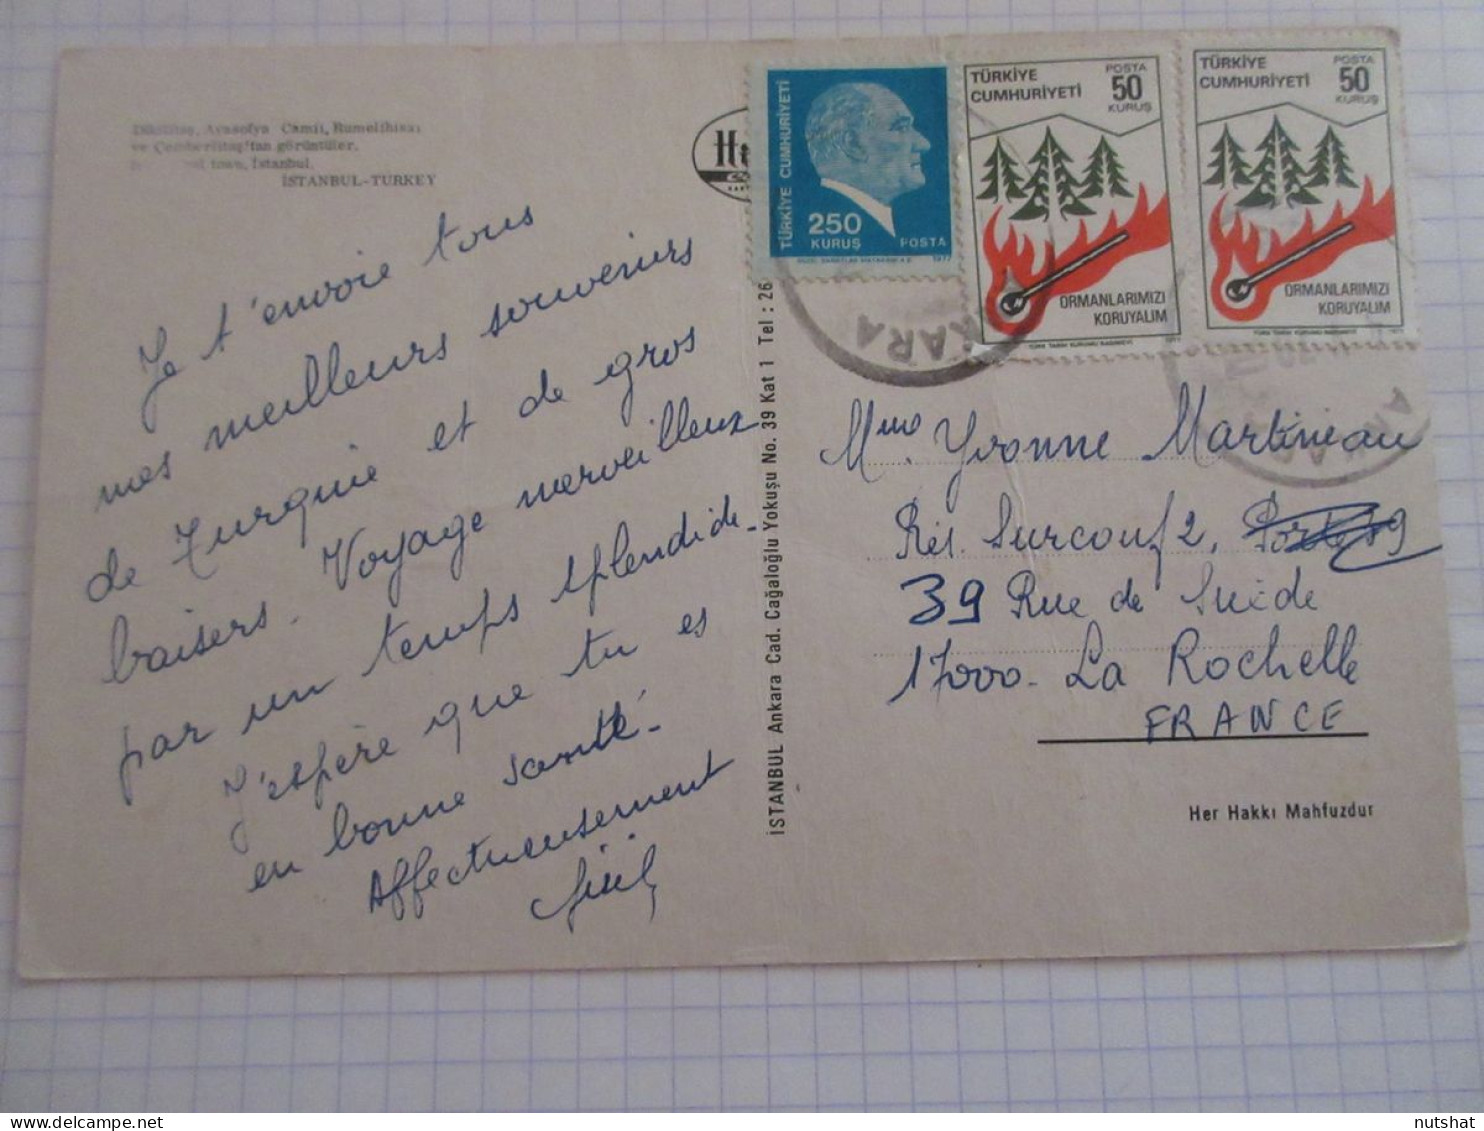 Dikilitaş, Ayasofya Camii, Rumelihisarı
ve Çemberlitaş'tan görüntüler.
town, İstanbul.
İSTANBUL-TURKEY
Je t'envoie tous
mes meilleurs souvenirs
de Turquie et de gros
baisers. Voyage merveilleux
par un temps splendide.
J'espère que tu es
en bonne santé.
Affectueusement
İSTANBUL Ankara Cad. Cağaloğlu Yokuşu No. 39 Kat 1 Tel : 26
TÜRKİYE CUMHURİYETİ
250
KURUŞ
POSTA
1977
TÜRKİYE
CUMHURİYETİ
POSTA
50
KURUŞ
ORMANLARIMIZI
KORUYALIM
TÜRKİYE
CUMHURİYETİ
POSTA
50
KURUŞ
ORMANLARIMIZI
KORUYALIM
ANKARA
Mme Yvonne Martineau
Rés. Surcouf 2,
39 Rue de Suède
17000 - La Rochelle
FRANCE
Her Hakkı Mahfuzdur
nutshat